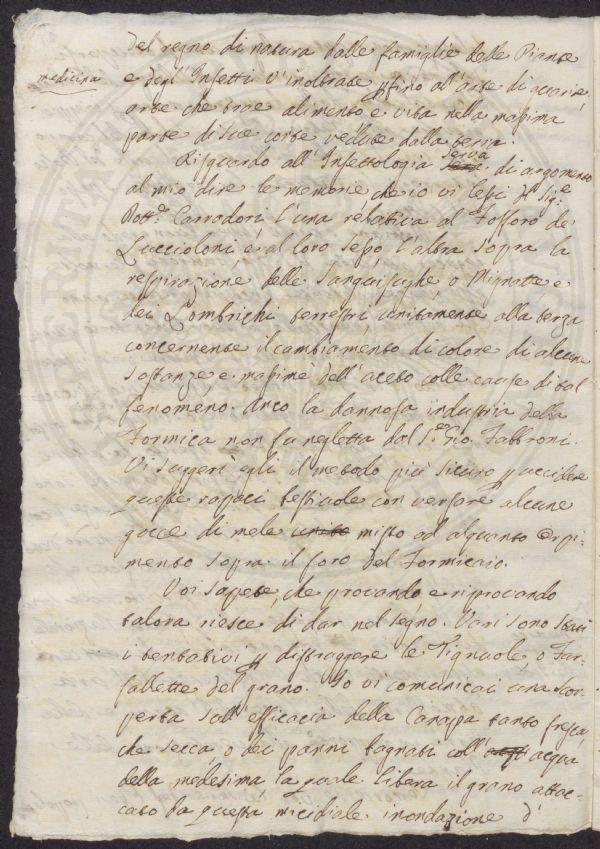 del regno di natura dalle famiglie delle Piante
medicina
e degl'Insetti v'inoltrate pfino all'arte di guarire,
arte che trae alimento e vita nella massima
parte di sue corte vedute dalla terra.
Risguardo all'Insettologia serva di argomento
al mio dire le memorie che io vi lessi del Sig.e
Dott.e Carradori l'una relativa al Fosforo de'
Luccioloni e al loro sesso l'altra sopra la
respirazione delle Sanguisughe o Mignatte e
dei Lombrichi terrestri unitamente alla terza
concernente il cambiamento di colore di alcune
sostanze e massime dell'aceto colle cause di tal
fenomeno. Anco la dannosa industria della
Formica non fu negletta dal S.r Gio. Fabbroni.
Vi suggerì egli il metodo più sicuro p uccidere
queste rapaci bestiuole con versare alcune
gocce di mele unito misto ad alquanto orpi-
mento sopra il foro del Formicaio.
Voi sapete, che provando e riprovando
talora riesce di dar nel segno. Vari sono stati
i tentativi p distruggere le Tignuole, o Far-
fallette del grano. Io vi comunicai una sco-
perta sull'efficacia della Canapa tanto fresca,
che secca o dei panni bagnati coll' acqua
della medesima, la quale libera il grano attac-
cato da questa micidiale inondazione d'